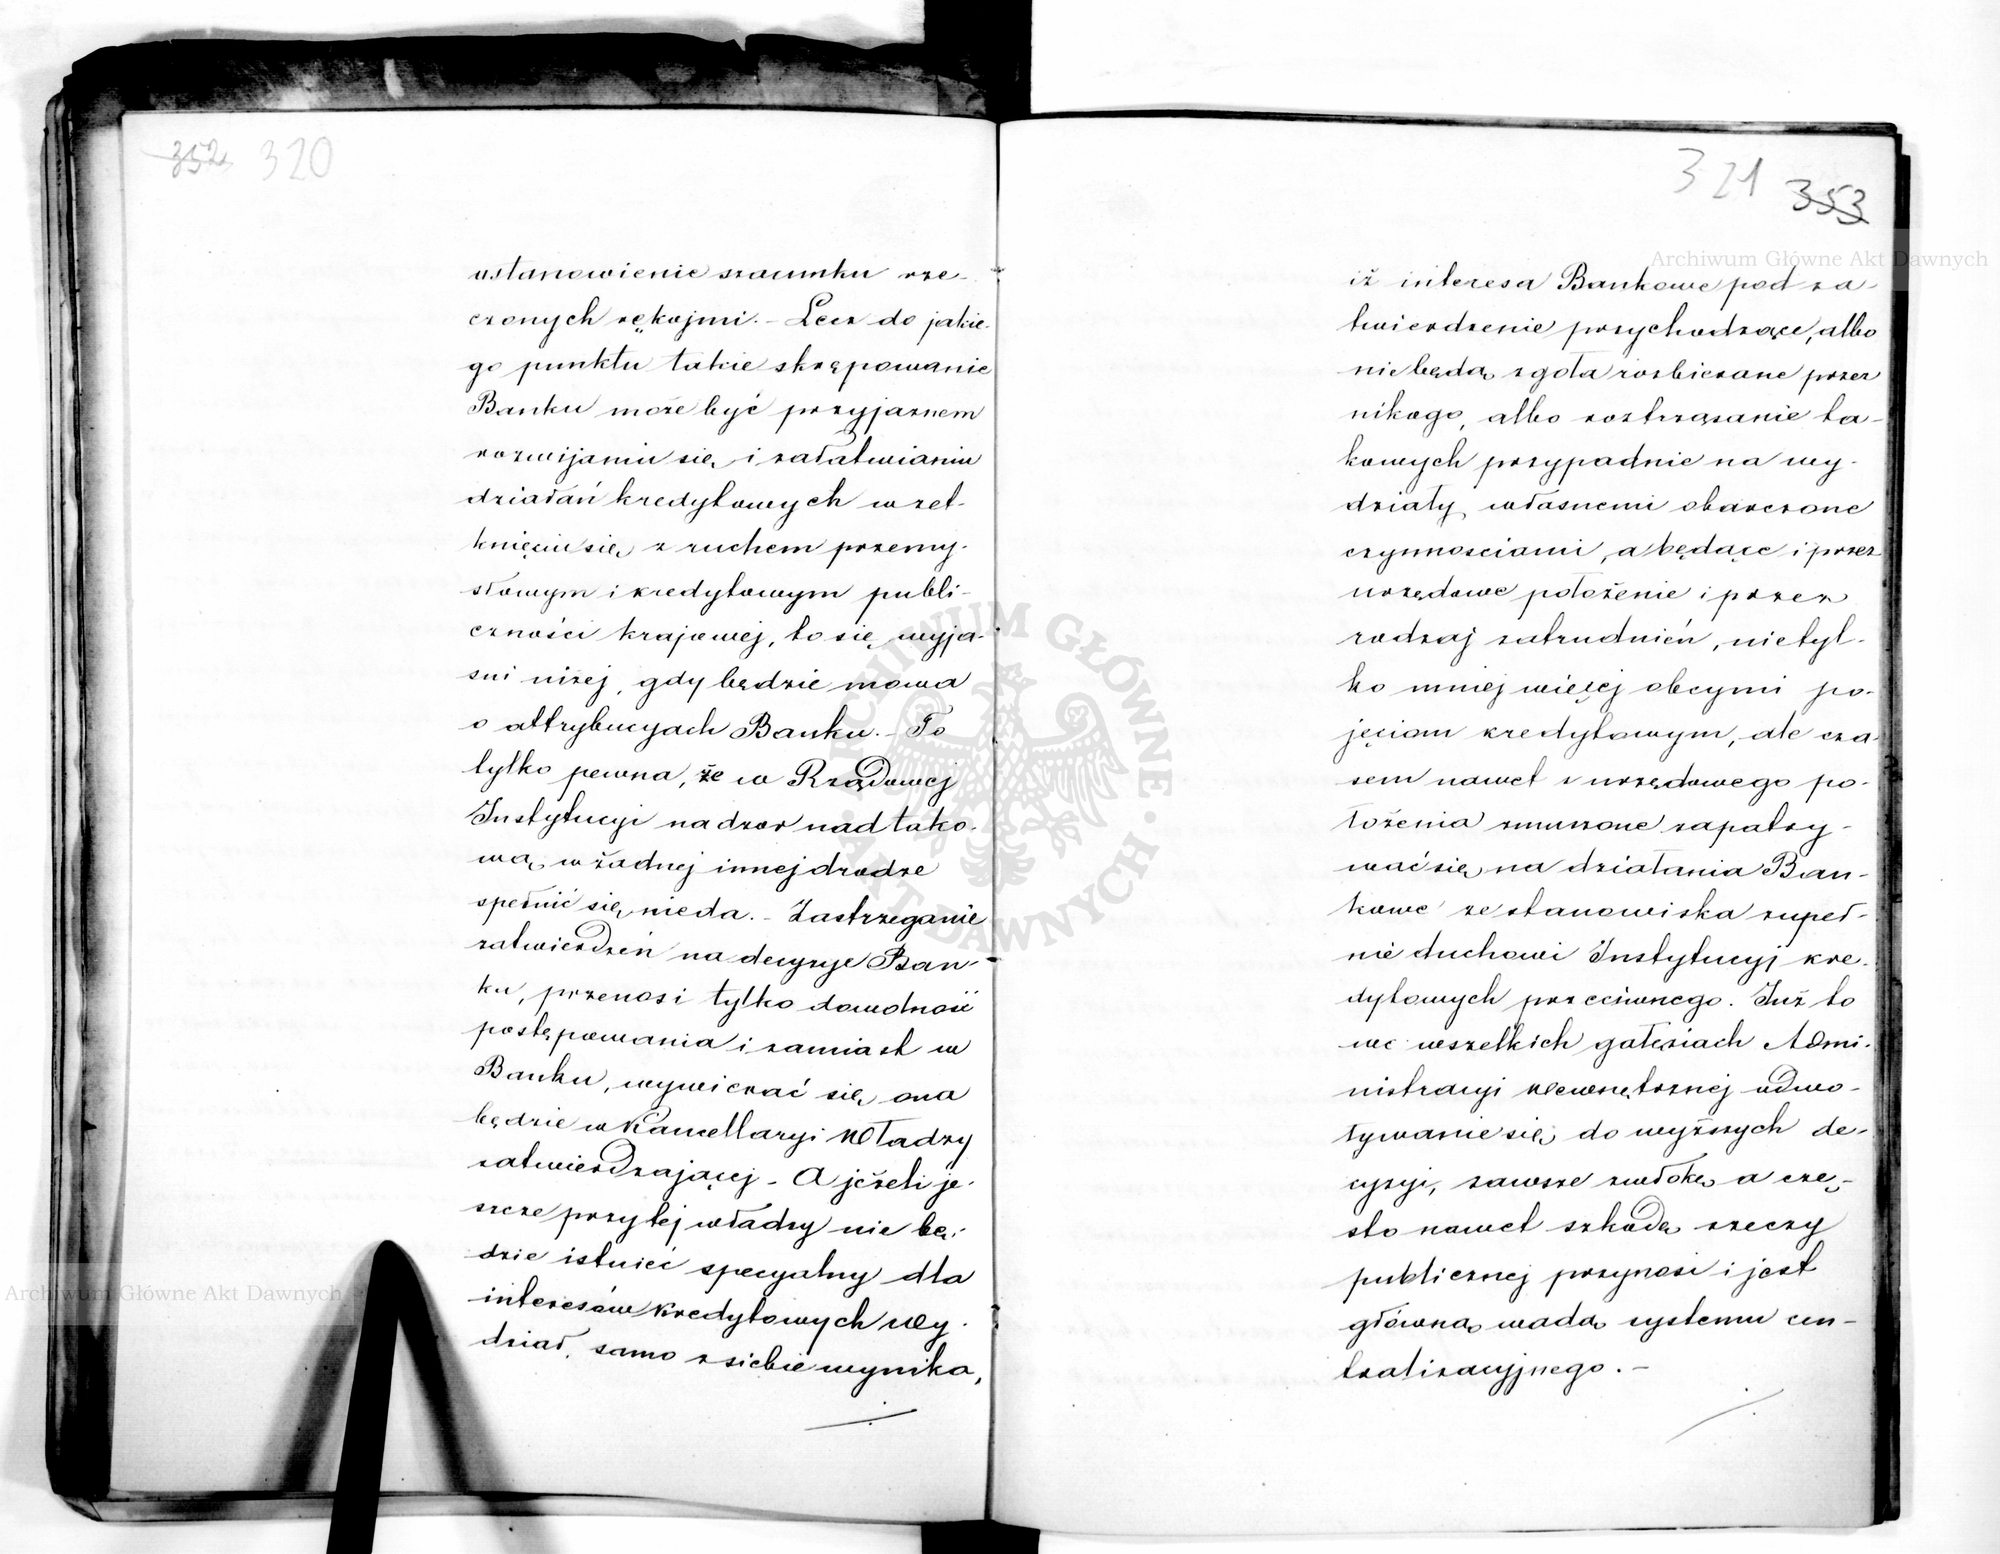 352 320
ustanowienie szacunku rze-
czonych rękojmi. - Lecz do jakie-
go punktu takie skrępowanie
Banku może być przyjaznem
rozwijaniu się i załatwianiu
działań kredytowych w zet-
knięciu się z ruchem przemy-
słowym i kredytowym publi-
czności krajowej, to się wyja-
śni niżej, gdy będzie mowa
o attrybucyach Banku. - To
tylko pewna, że w Rządowej
Instytucyi nadzor nad tako-
wą, w żadnej innej drodze
spełnić się nieda. - Zastrzeganie
zatwierdzeń na decyzye Ban-
ku, przenosi tylko dowolność
postępowania i zamiast w
Banku, wywierać się ona
będzie w Kancellaryi Władzy
zatwierdzającej - A jeżeli je-
szcze przy tej władzy nie bę-
dzie istnieć specyalny dla
interesów kredytowych Wy-
dział, samo z siebie wynika,
321 353
iż interesa Bankowe pod za-
twierdzenie przychodzące, albo
nie będą zgoła rozbierane przez
nikogo, albo roztrząsanie ta-
kowych przypadnie na wy-
działy, własnemi obarczone
czynnosciami, a będące i przez
urzędowe położenie i przez
rodzaj zatrudnień, nietyl-
ko mniej więcej obcymi po-
jęciom kredytowym, ale cza-
sem nawet z urzędowego po-
łożenia zmuszone zapatry-
wać się na działania Ban-
kowe ze stanowiska zupeł-
nie duchowi Instytucyj kre-
dytowych przeciwnego. Już to
we wszelkich gałęziach Admi-
nistracyi wewnętrznej odwo-
ływanie się do wyższych de-
cyzyi, zawsze zwłokę a czę-
sto nawet szkodę rzeczy
publicznej przynosi i jest
główną wadą systemu cen-
tralizacyjnego. -
Archiwum Główne Akt Dawnych
Archiwum Główne Akt Dawnych
ARCHIWUM GŁÓWNE · AKT DAWNYCH ·